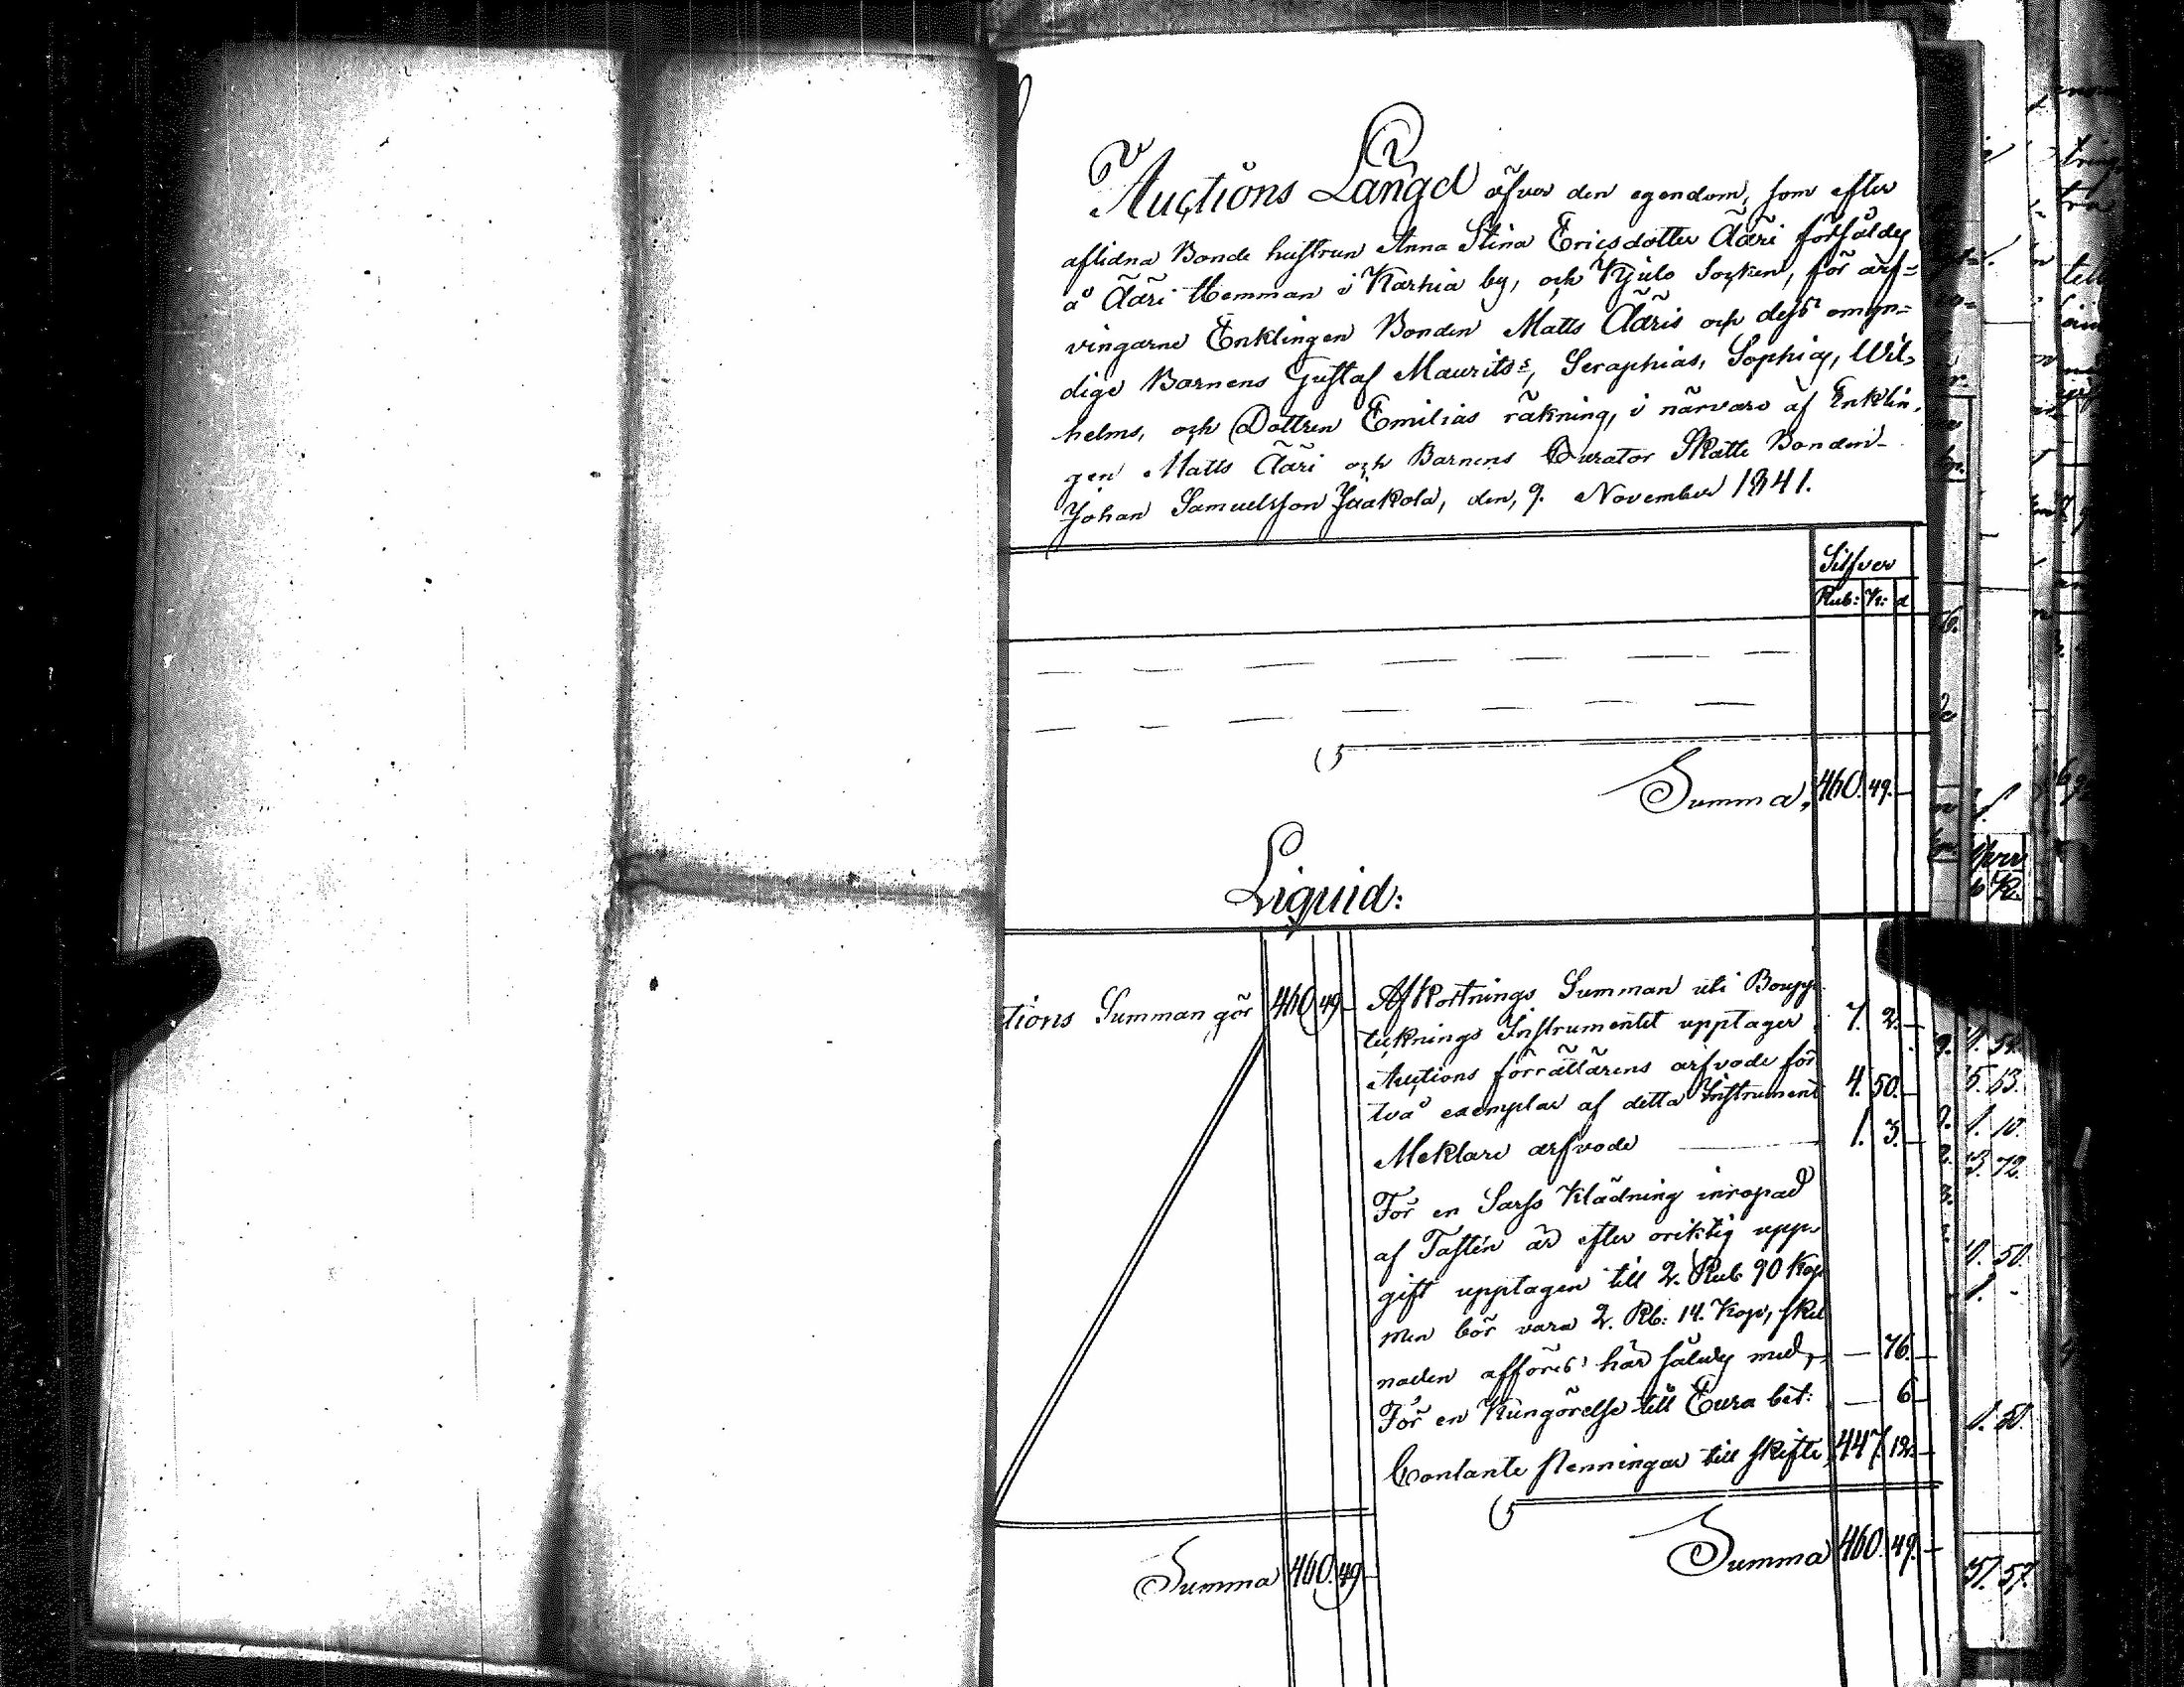 Auctions Längd öfver den egendom, som efter
aflidna Bonde hustrun Anna Stina Ericsdotter Ääri försåldes
å Ääri Hemman i Karhia by, och Kjulo Socken, för arf=
vingarne Enklingen Bonden Matts Ääris och dess omyn=
dige Barnens Gustaf Maurits's, Seraphias, Sophias, Wil=
helms, och Dottren Emilias räkning, i närvaro af Enklin=
gen Matts Ääri och Barnens Curator Skatte Bonden
Johan Samuelsson Jaakola, den, 9. November 1841.
Silfver
Rub: K: d
Summa, 460. 49. —
Liquid:
tions Summan gör 460 49 —
Afkortnings Summan uti Boupp
tecknings Instrumentet upptager 7. 2. —
Auctions förrättärens arfvode för
två exemplar af detta Instrument 4. 50. —
Meklare arfvode 1. 3. —
För en Sarss Klädning inropad
af Tasten är efter oriktig upp=
gift upptagen till 2. Rub 90 Kop
men bör vara 2. Rb: 14. Kop, skil
naden afföres här således med, — 76. —
För en Kungörelse till Eura bet: — 6 —
Contante Penningar till skifte 447. 12. —
Summa 460. 49 —
Summa 460. 49. —